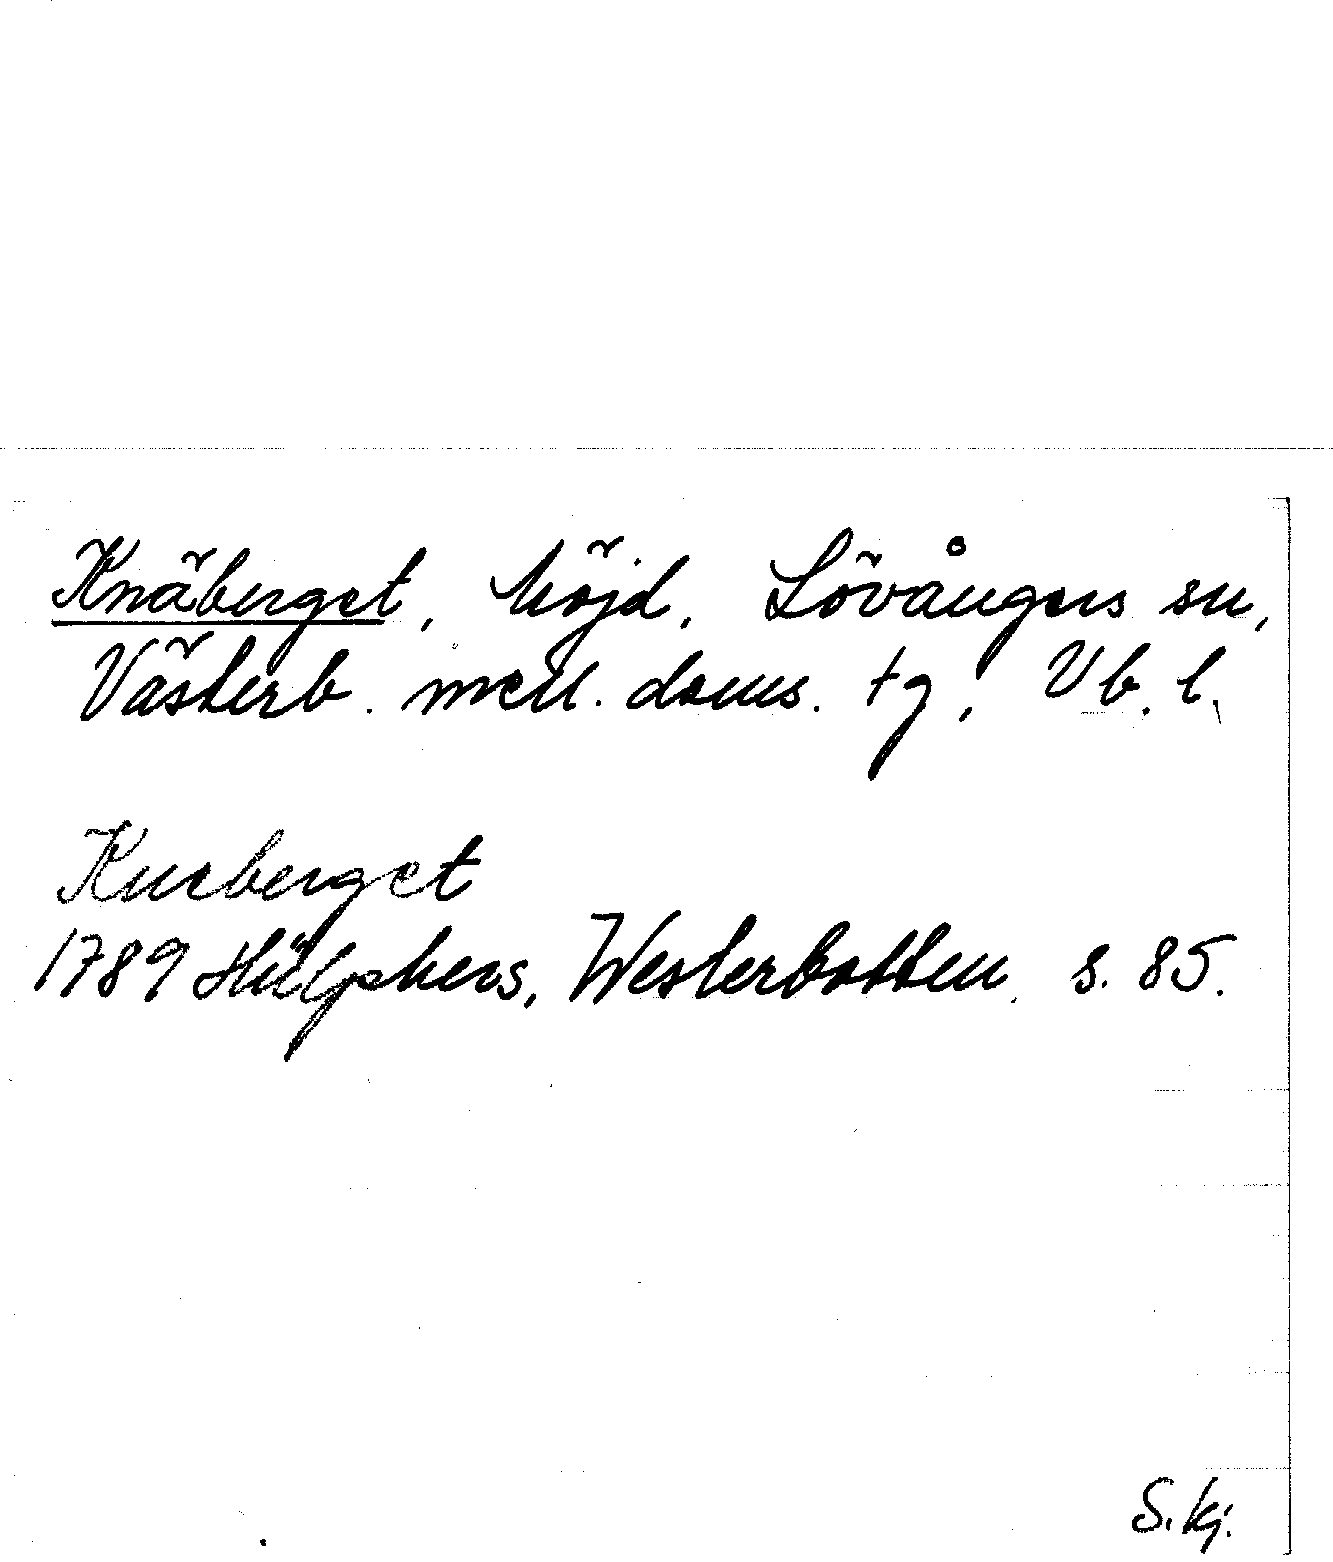 Knäberget, höjd, Lövångers sn,
Västerb. mell. doms. tg, Vb. l.
Kneberget
1789 Hülphers, Westerbotten, s. 85.
S. Kj.